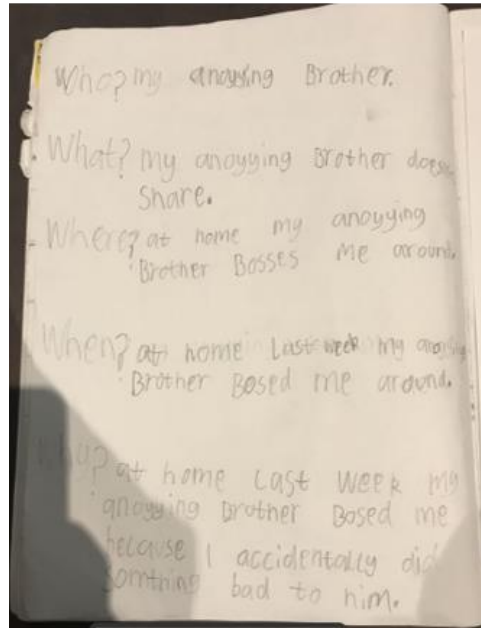 Who? my anoyying Brother.
What? my anoyying Brother doesn
share.
Where? at home my anoyying
Brother Bosses me around.
When? at home Last week my
Brother Bosed me around.
Why? at home Last week my
anoyying Brother Bosed me
because I accidentally did
somthing bad to him.